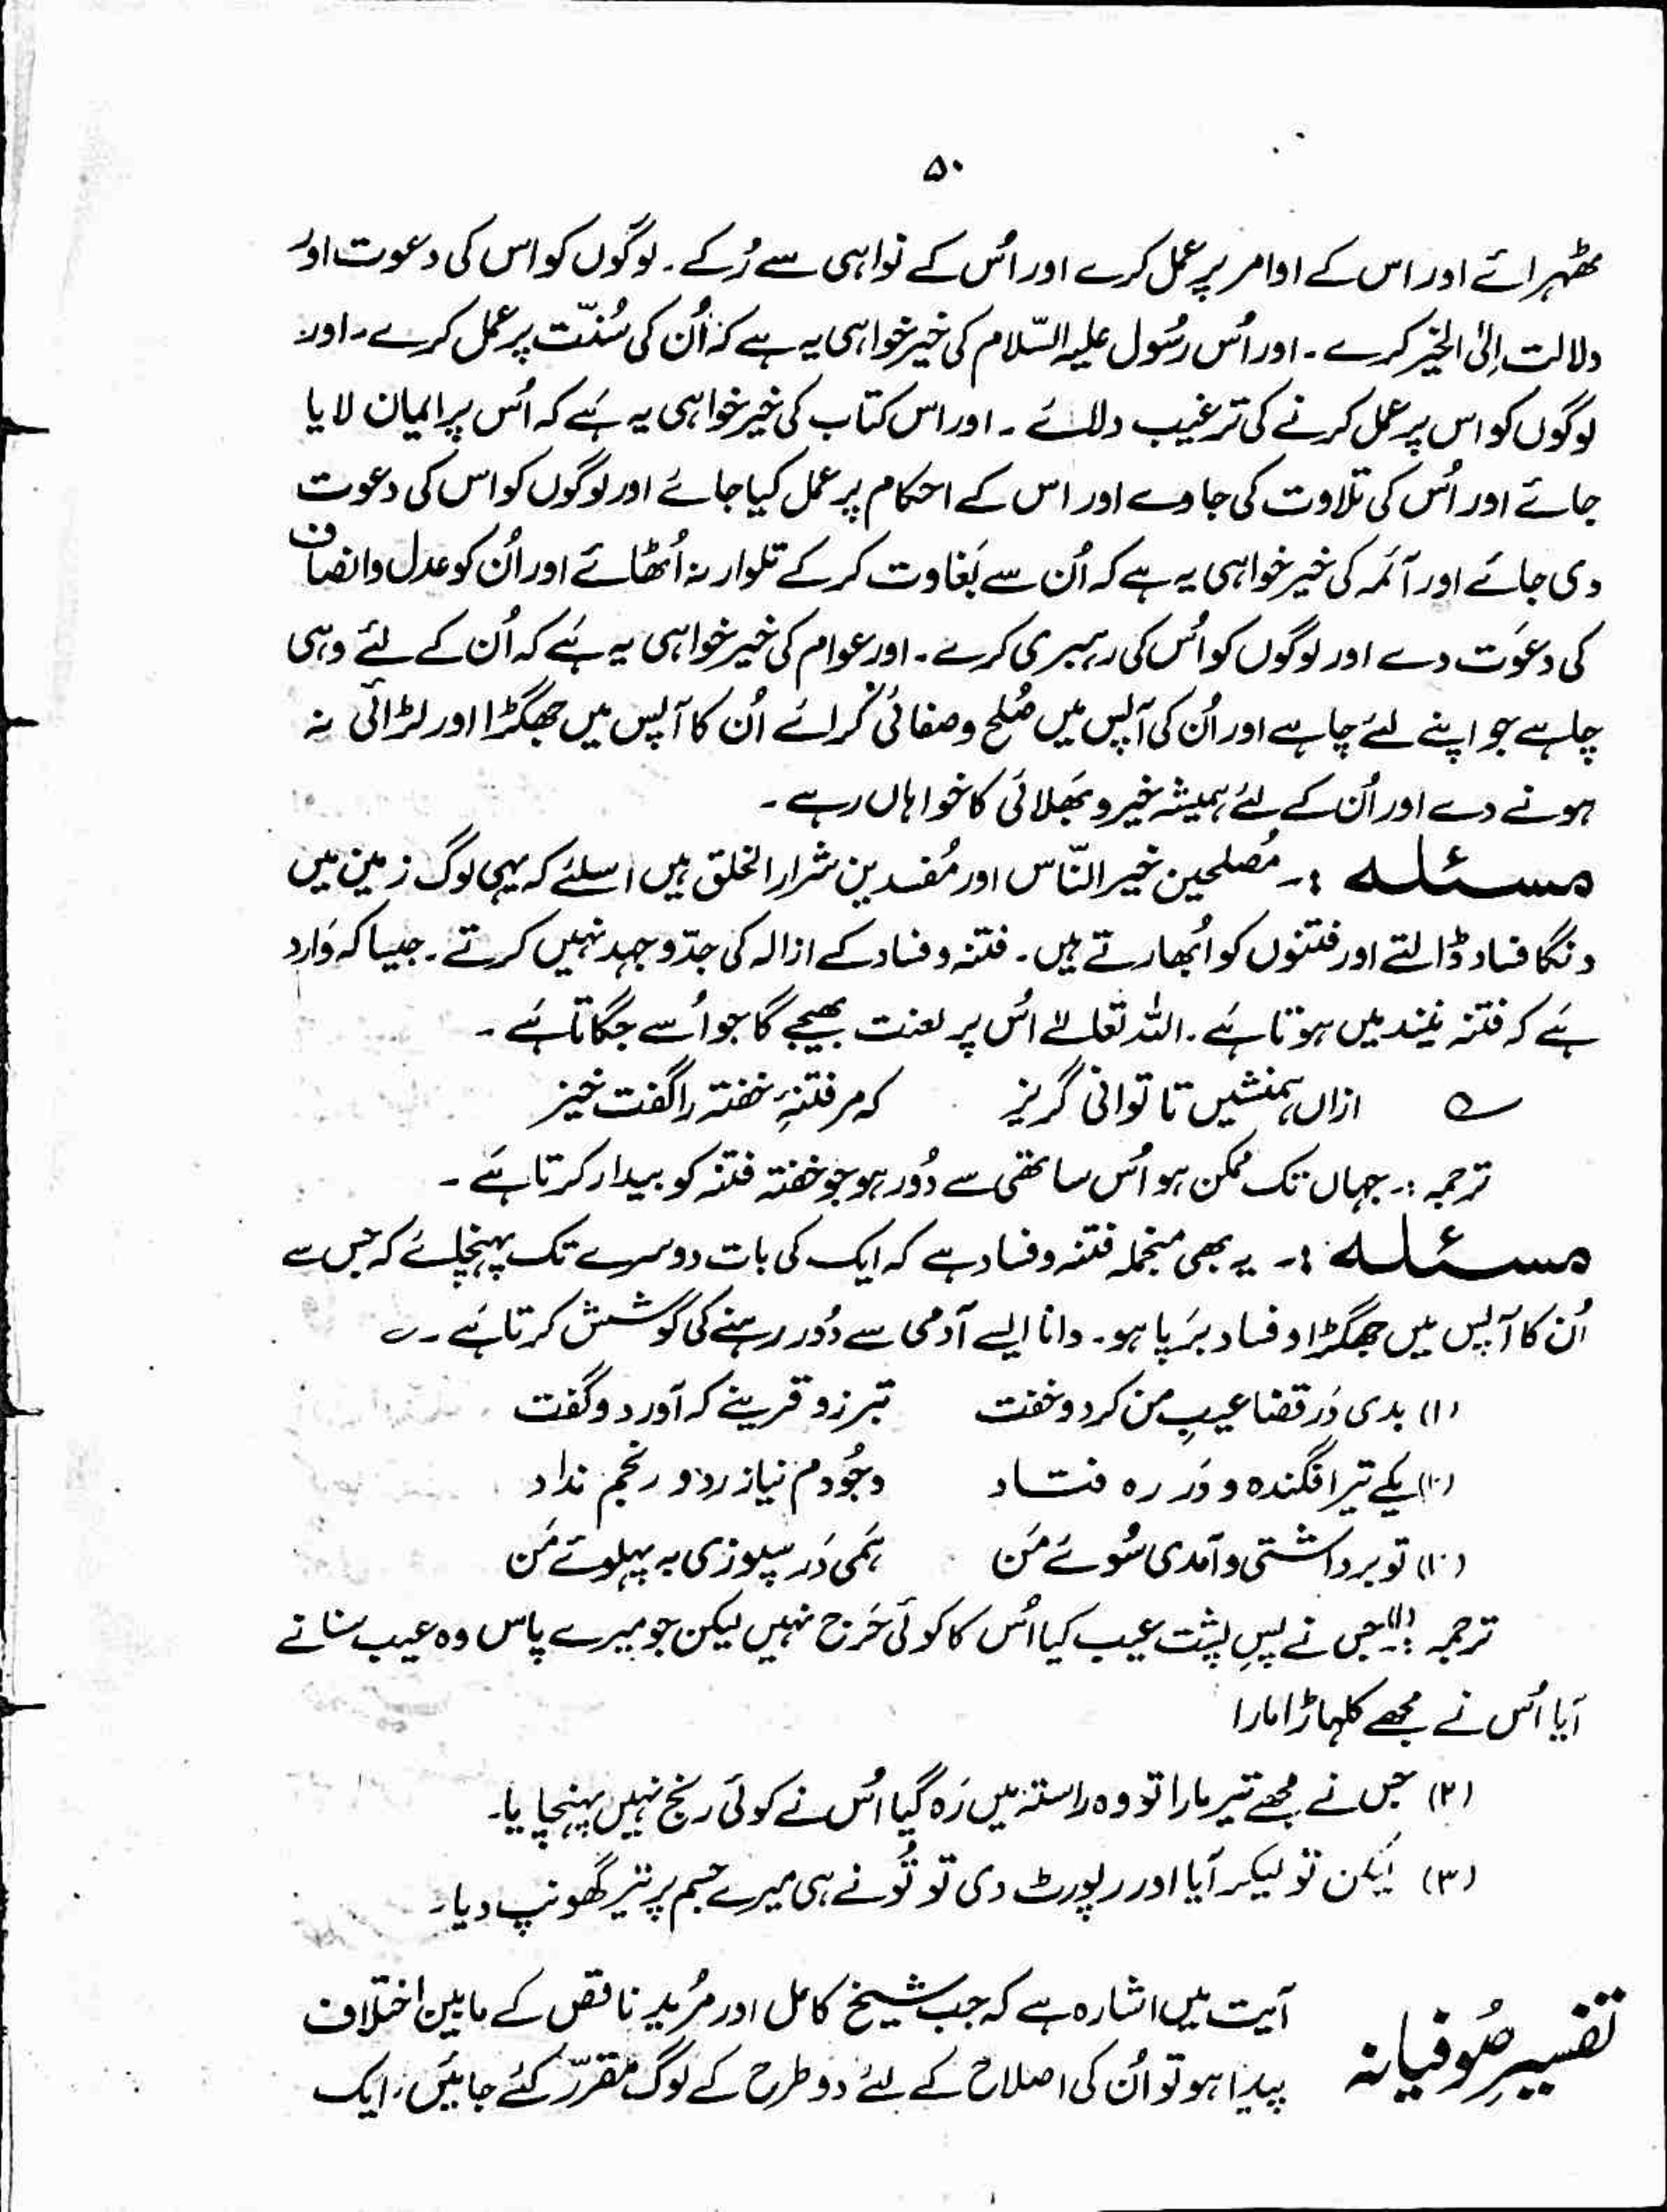 ۵۰
ٹھہرائے اور اس کے اوامر پر عمل کرے اور اُس کے نواہی سے رُکے۔ لوگوں کو اس کی دعوت اور
دلالت اِلیٰ الخیر کرے۔ اور اُس رسُول علیہ السّلام کی خیر خواہی یہ ہے کہ اُن کی سُنّت پر عمل کرے۔ اور
لوگوں کو اس پر عمل کرنے کی ترغیب دلائے۔ اور اس کتاب کی خیر خواہی یہ ہَے کہ اُس پر ایمان لایا
جائے اور اُس کی تلاوت کی جاوے اور اس کے احکام پر عمل کیا جائے اور لوگوں کو اس کی دعوت
دی جائے اور آئمہ کی خیر خواہی یہ ہے کہ اُن سے بَغاوت کر کے تلوار نہ اُٹھائے اور اُن کو عدل و انصاف
کی دعوَت دے اور لوگوں کو اُس کی رہبری کرے۔ اور عوام کی خیر خواہی یہ ہَے کہ اُن کے لئے وہی
چاہے جو اپنے لئے چاہے اور اُن کی آپس میں صُلح و صفائی کرائے اُن کا آپس میں جھگڑا اور لڑائی نہ
ہونے دے اور اُن کے لئے ہمیشہ خیر و بَھلائی کا خواہاں رہے۔
مسئلہ :۔ مُصلحین خیر النّاس اور مُفسدین شرار الخلق ہیں اسلئے کہ یہی لوگ زمین میں
دنگا فساد ڈالتے اور فتنوں کو اُبھارتے ہیں۔ فتنہ و فساد کے ازالہ کی جدّ و جہد نہیں کرتے۔ جیسا کہ وَارد
ہَے کہ فتنہ نیند میں ہوتا ہَے۔ اللہ تعالےٰ اُس پر لعنت بھیجے گا جو اُسے جگاتا ہَے۔
؎ ازاں ہمنشیں تا توانی گریز کہ مر فتنۂ خفتہ را گفت خیز
ترجمہ :۔ جہاں تک ممکن ہو اُس ساتھی سے دُور ہو جو خفتہ فتنہ کو بیدار کرتا ہَے۔
مسئلہ :۔ یہ بھی منجملہ فتنہ و فساد ہے کہ ایک کی بات دوسرے تک پہنچائے کہ جس سے
اُن کا آپس میں جھگڑا و فساد بَرپا ہو۔ دانا ایسے آدمی سے دُور رہنے کی کوشش کرتا ہَے۔؎
(۱) بدی دَر قضا عیبِ من کرد و خفت تبر زو قرینے کہ آورد و گفت
(۲) یکے تیر افگندہ و دَر رہ فتاد وجُودم نیازرد و رنجم نداد
(۳) تو برداشتی و آمدی سُوئے مَن ہَمی دَر سپوزی بہ پہلوئے مَن
ترجمہ :۔(۱) جس نے پسِ پشت عیب کیا اُس کا کوئی حَرج نہیں لیکن جو میرے پاس وہ عیب سنانے
آیا اُس نے مجھے کلہاڑا مارا
(۲) جس نے مجھے تیر مارا تو وہ راستہ میں رَہ گیا اُس نے کوئی رنج نہیں پہنچایا۔
(۳) لیکن تو لیکر آیا اور رپورٹ دی تو تُو نے ہی میرے جسم پر تیر گھونپ دیا۔
تفسیرِ صُوفیانہ آیت میں اشارہ ہے کہ جب شیخ کامل اور مرُید ناقص کے مابین اختلاف
پیدا ہو تو اُن کی اصلاح کے لئے دو طرح کے لوگ مقررّ کئے جائیں، ایک